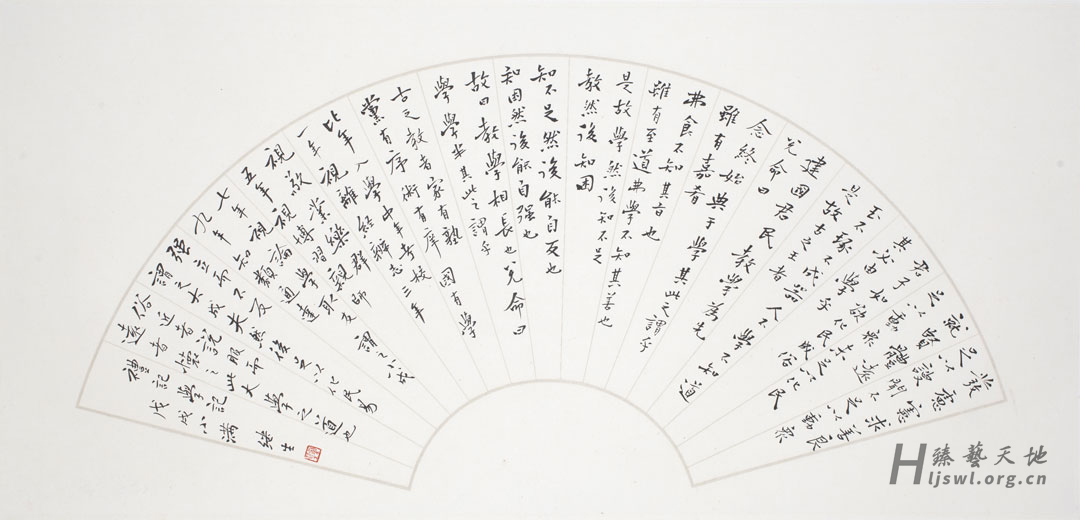 發慮憲求善良
足以謏聞不足以動眾
就賢體遠足以動眾
未足以化民
君子如欲化民成俗
其必由學乎
玉不琢不成器人不學不知道
是故古之王者
建國君民教學為先
兌命曰
念終始典于學其此之謂乎
雖有嘉肴
弗食不知其旨也
雖有至道弗學不知其善也
是故學然後知不足
教然後知困
知不足然後能自反也
知困然後能自强也
故曰教學相長也兌命曰
學學半其此之謂乎
古之教者家有塾
黨有序術有庠國有學
比年入學中年考校
一年視離經辨志三年
視敬業樂群
五年視博習親師
七年視論學取友謂之小成
九年知類通達
强立而不反
謂之大成夫然後足以化民易
俗近者說服而
遠者懷之此大學之道也
禮記學記
戊戌小滿
臻藝天地
Hljswl.org.cn